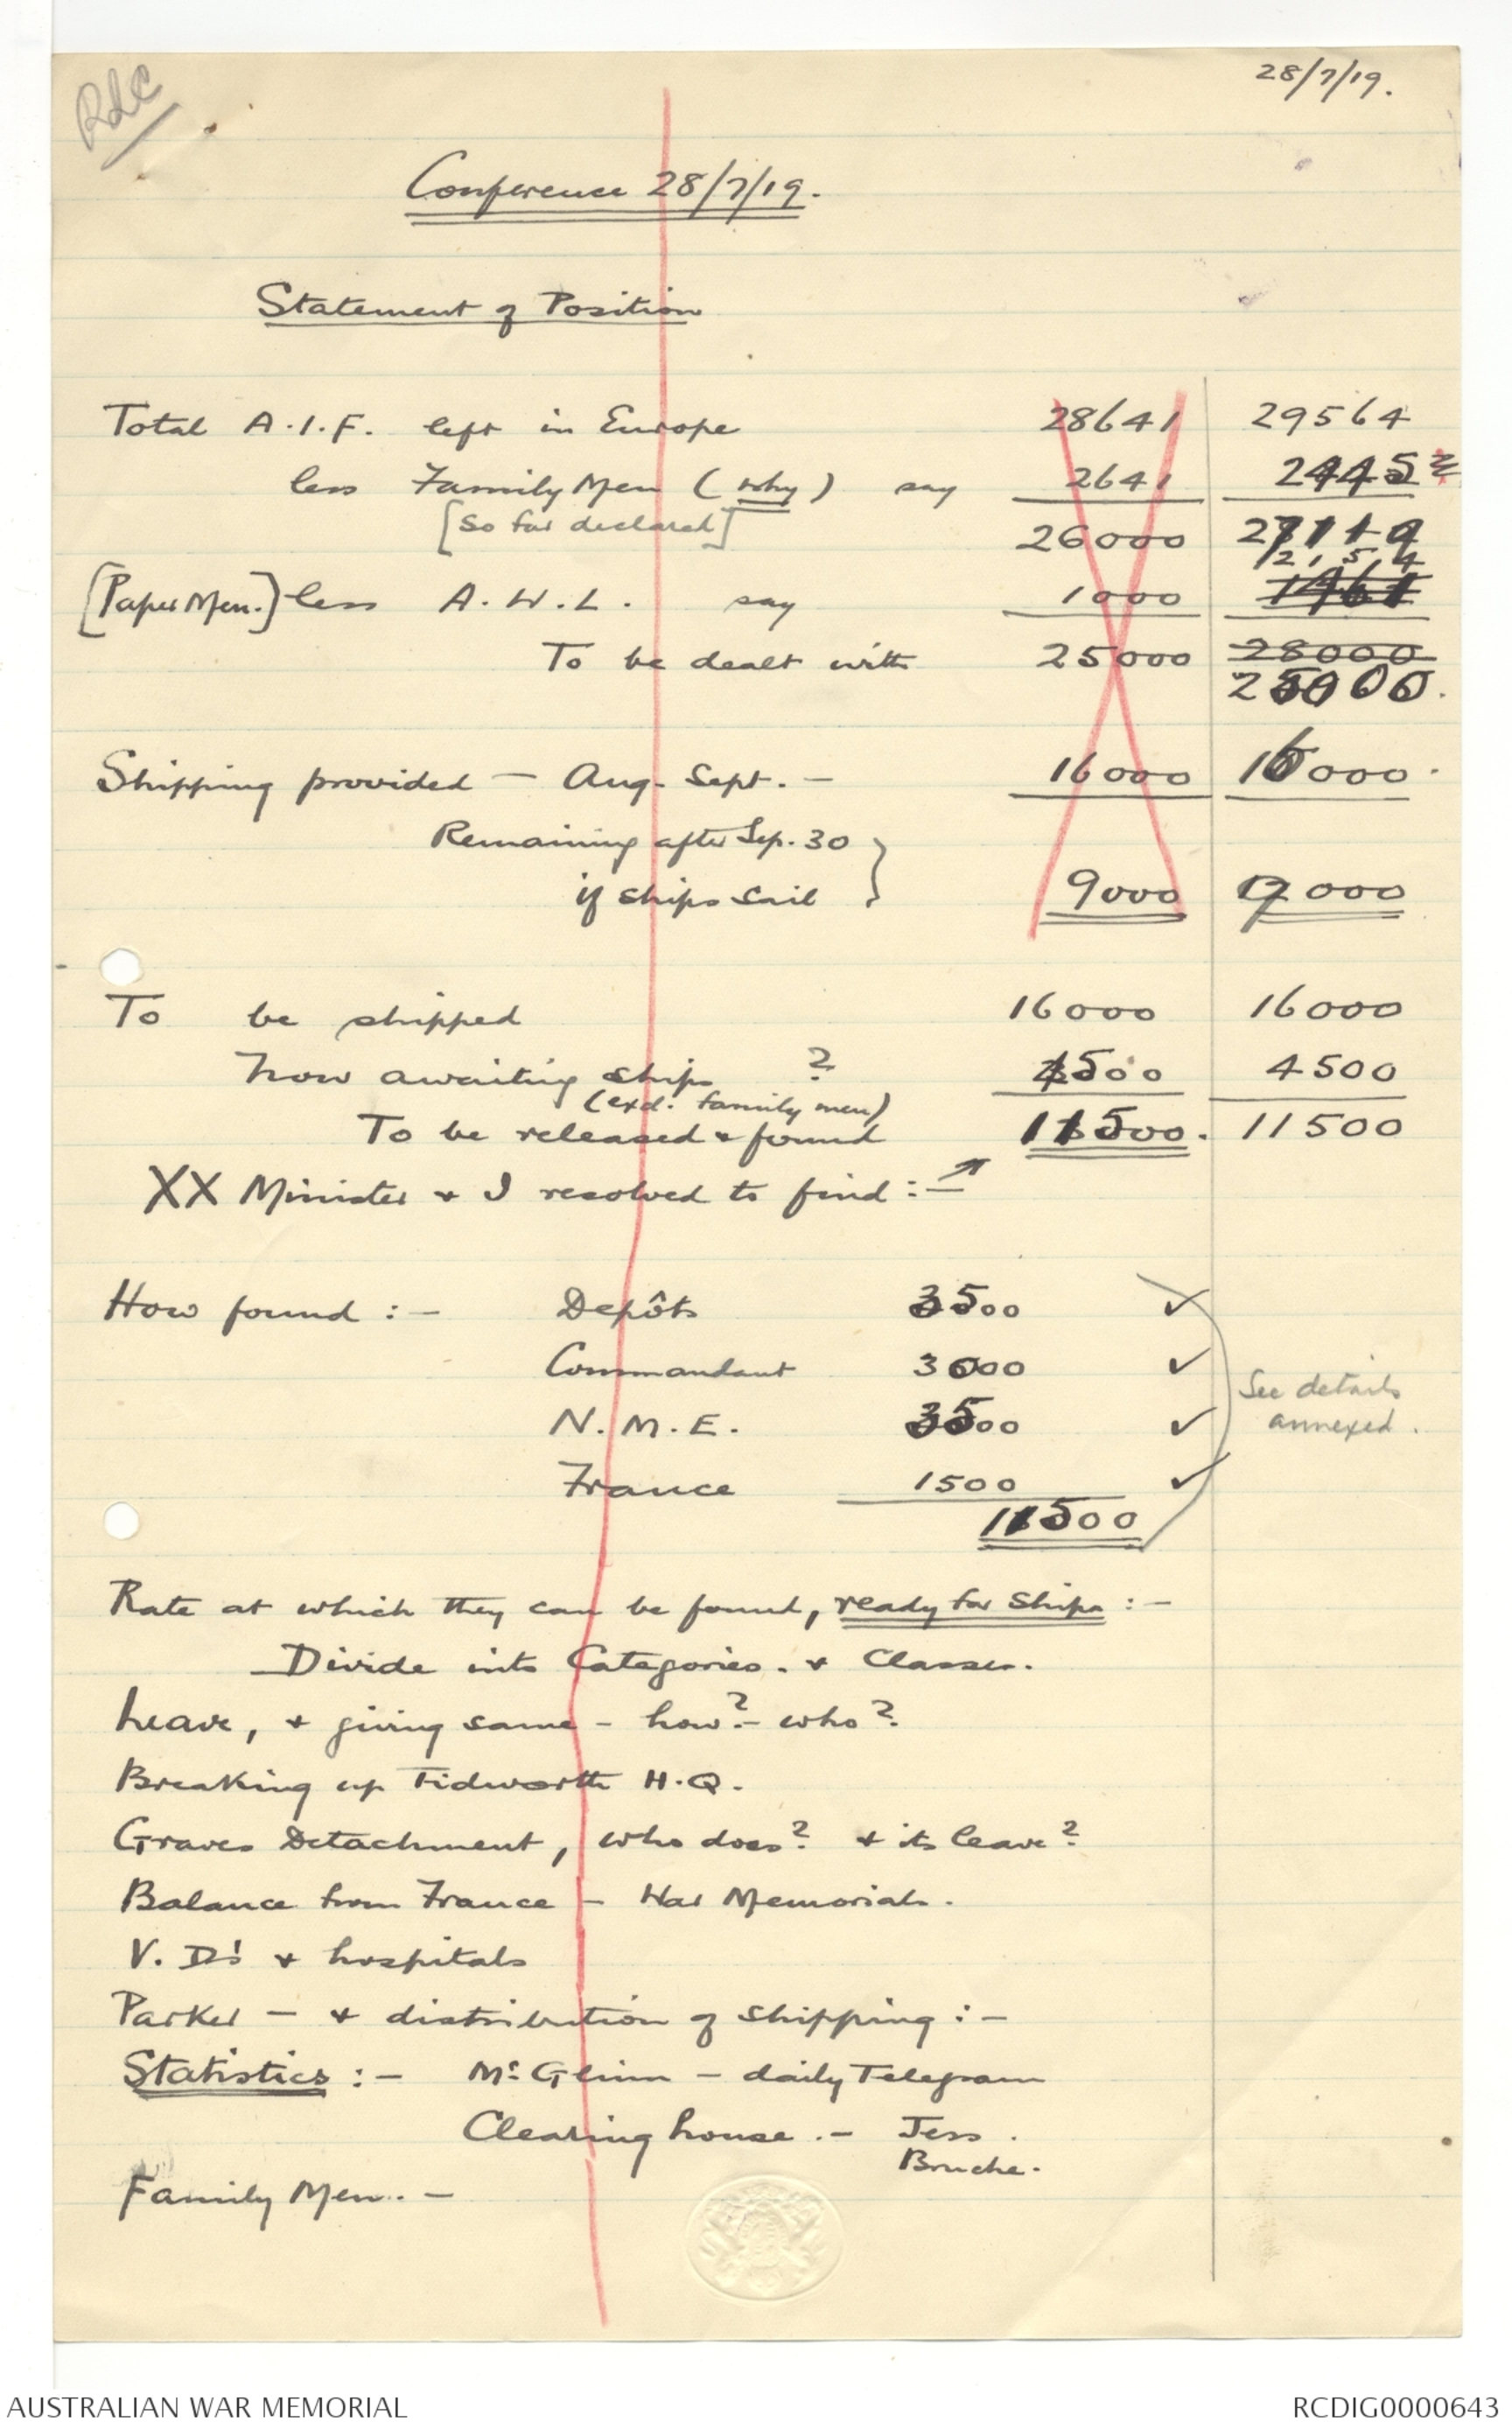 28/7/19.
Conference 28/7/19.
Statement of Position
Total A.I.F. left in Europe 28641 29564
less Family Men (why) say 2641
[So far declared] 26000
[Paper Men.] less A.W.L. say 1000 2154
To be dealt with 25000 28000
Shipping provided - Aug. Sept. - 16000 16000.
Remaining after Sep. 30
if ships sail } 9000
To be shipped 16000 16000
now awaiting ships ? 4500 4500
(excl. family men)
To be released & found 11500. 11500
XX Minister & I resolved to find :-
How found :- Depôts 3500 ✓
Commandant 3000 ✓
See details
annexed.
N.M.E. 3500 ✓
France 1500 ✓
11500
Rate at which they can be found, ready for Ships :-
Divide into Categories. & Classes.
Leave, & giving same - how? - who?
Breaking up Tidworth H.Q.
Graves Detachment, who does? & its leave?
Balance from France - War Memorials.
V.D's & hospitals
Parker - & distribution of shipping :-
Statistics :- McGlinn - daily Telegram
Clearing house. - Jess.
Bruche.
Family Men. -
AUSTRALIAN WAR MEMORIAL RCDIG0000643